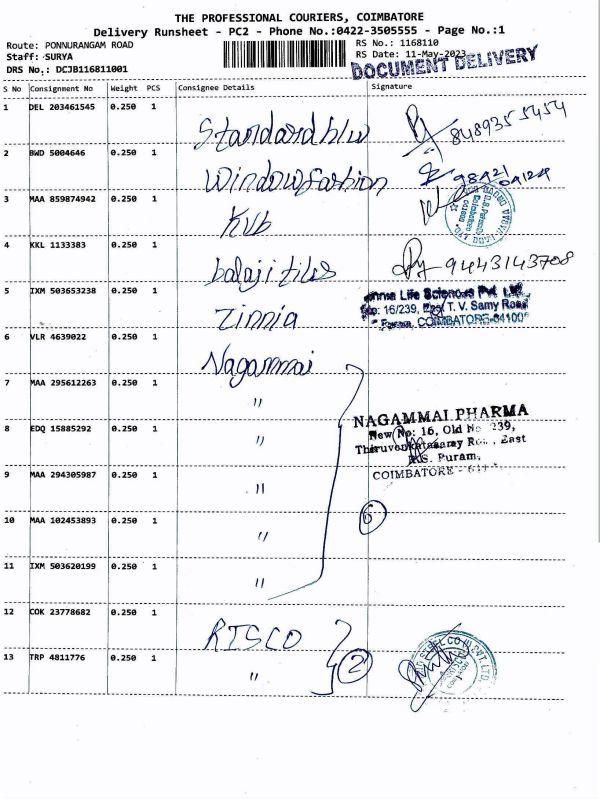 THE PROFESSIONAL COURIERS, COIMBATORE
Delivery Runsheet - PC2 - Phone No.:0422-3505555 - Page No.:1
Route: PONNURANGAM ROAD
RS No.: 1168110
Staff: SURYA
RS Date: 11-May-2023
DRS No.: DCJB116811001
DOCUMENT DELIVERY
S No Consignment No Weight PCS Consignee Details Signature
1 DEL 203461545 0.250 1 Standard blw 8489355454
2 BWD 5004646 0.250 1 Window fashion
3 MAA 859874942 0.250 1 KVb
4 KKL 1133383 0.250 1 balaji tiles 9443143708
5 IXM 503653238 0.250 1 Zinnia
Life Sciences Pvt Ltd
No: 16/239, T. V. Samy Road
Puram, COIMBATORE-64100
6 VLR 4639022 0.250 1 Nagammai
7 MAA 295612263 0.250 1 "
NAGAMMAI PHARMA
New No: 16, Old No 239,
8 EDQ 15885292 0.250 1 "
East
R.S. Puram,
COIMBATORE
9 MAA 294305987 0.250 1 "
10 MAA 102453893 0.250 1 " 6
11 IXM 503620199 0.250 1 "
12 COK 23778682 0.250 1 RISCO
13 TRP 4811776 0.250 1 " 2